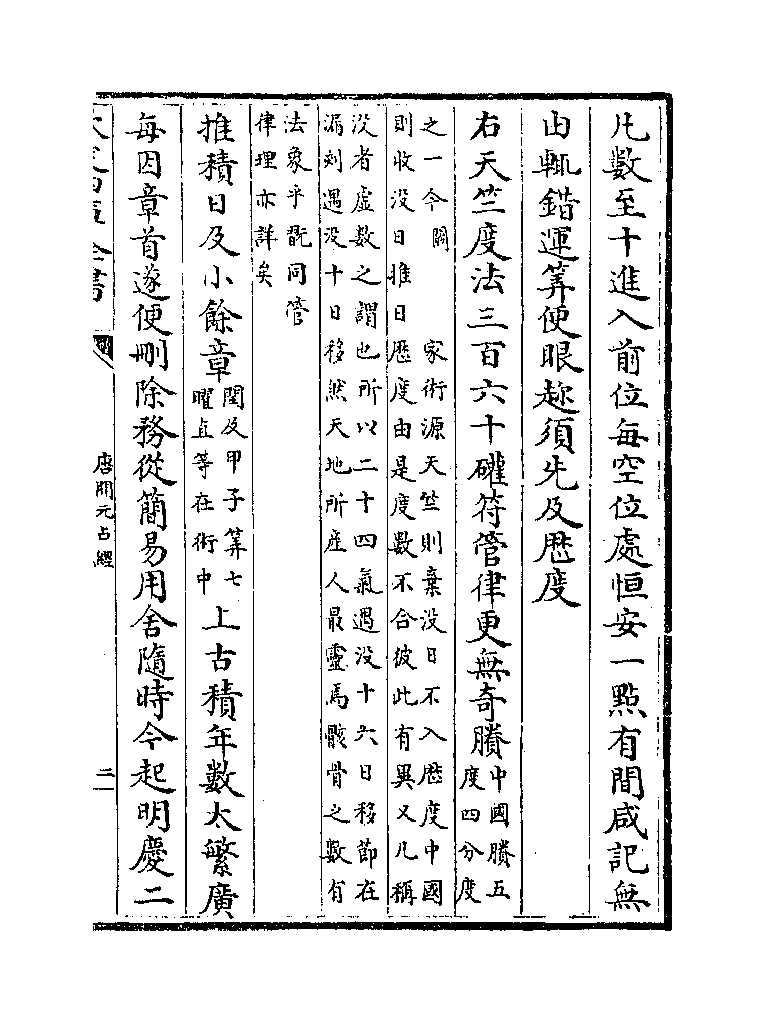 凡數至十進入前位每空位處恒安一點有間咸記無
由輒錯運筭便眼趂須先及厯度
右天竺度法三百六十礭符管律更無奇賸中國賸五
度四分度
之一今闕　　家術源天竺則棄没日不入厯度中國
則收没日推日厯度由是度數不合彼此有異又凡稱
没者虚數之謂也所以二十四氣遇没十六日移節在
漏刻遇没十日移然天地所産人最靈焉骸骨之數有
法象乎既同管
律理亦詳矣
推積日及小餘章閏及甲子筭七
曜直等在術中上古積年數太繁廣
每因章首遂便刪除務從簡易用舍隨時今起明慶二
全書
唐開元占經
二